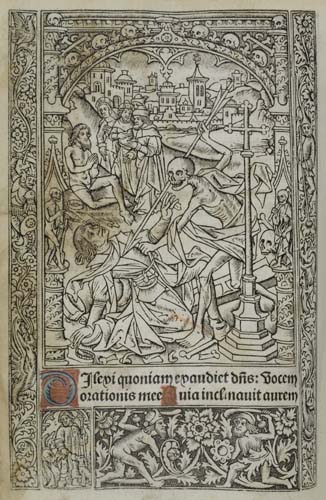 DIlexi quoniam exaudiet dñs: Vocem
orationis mee Quia inclinavit aurem